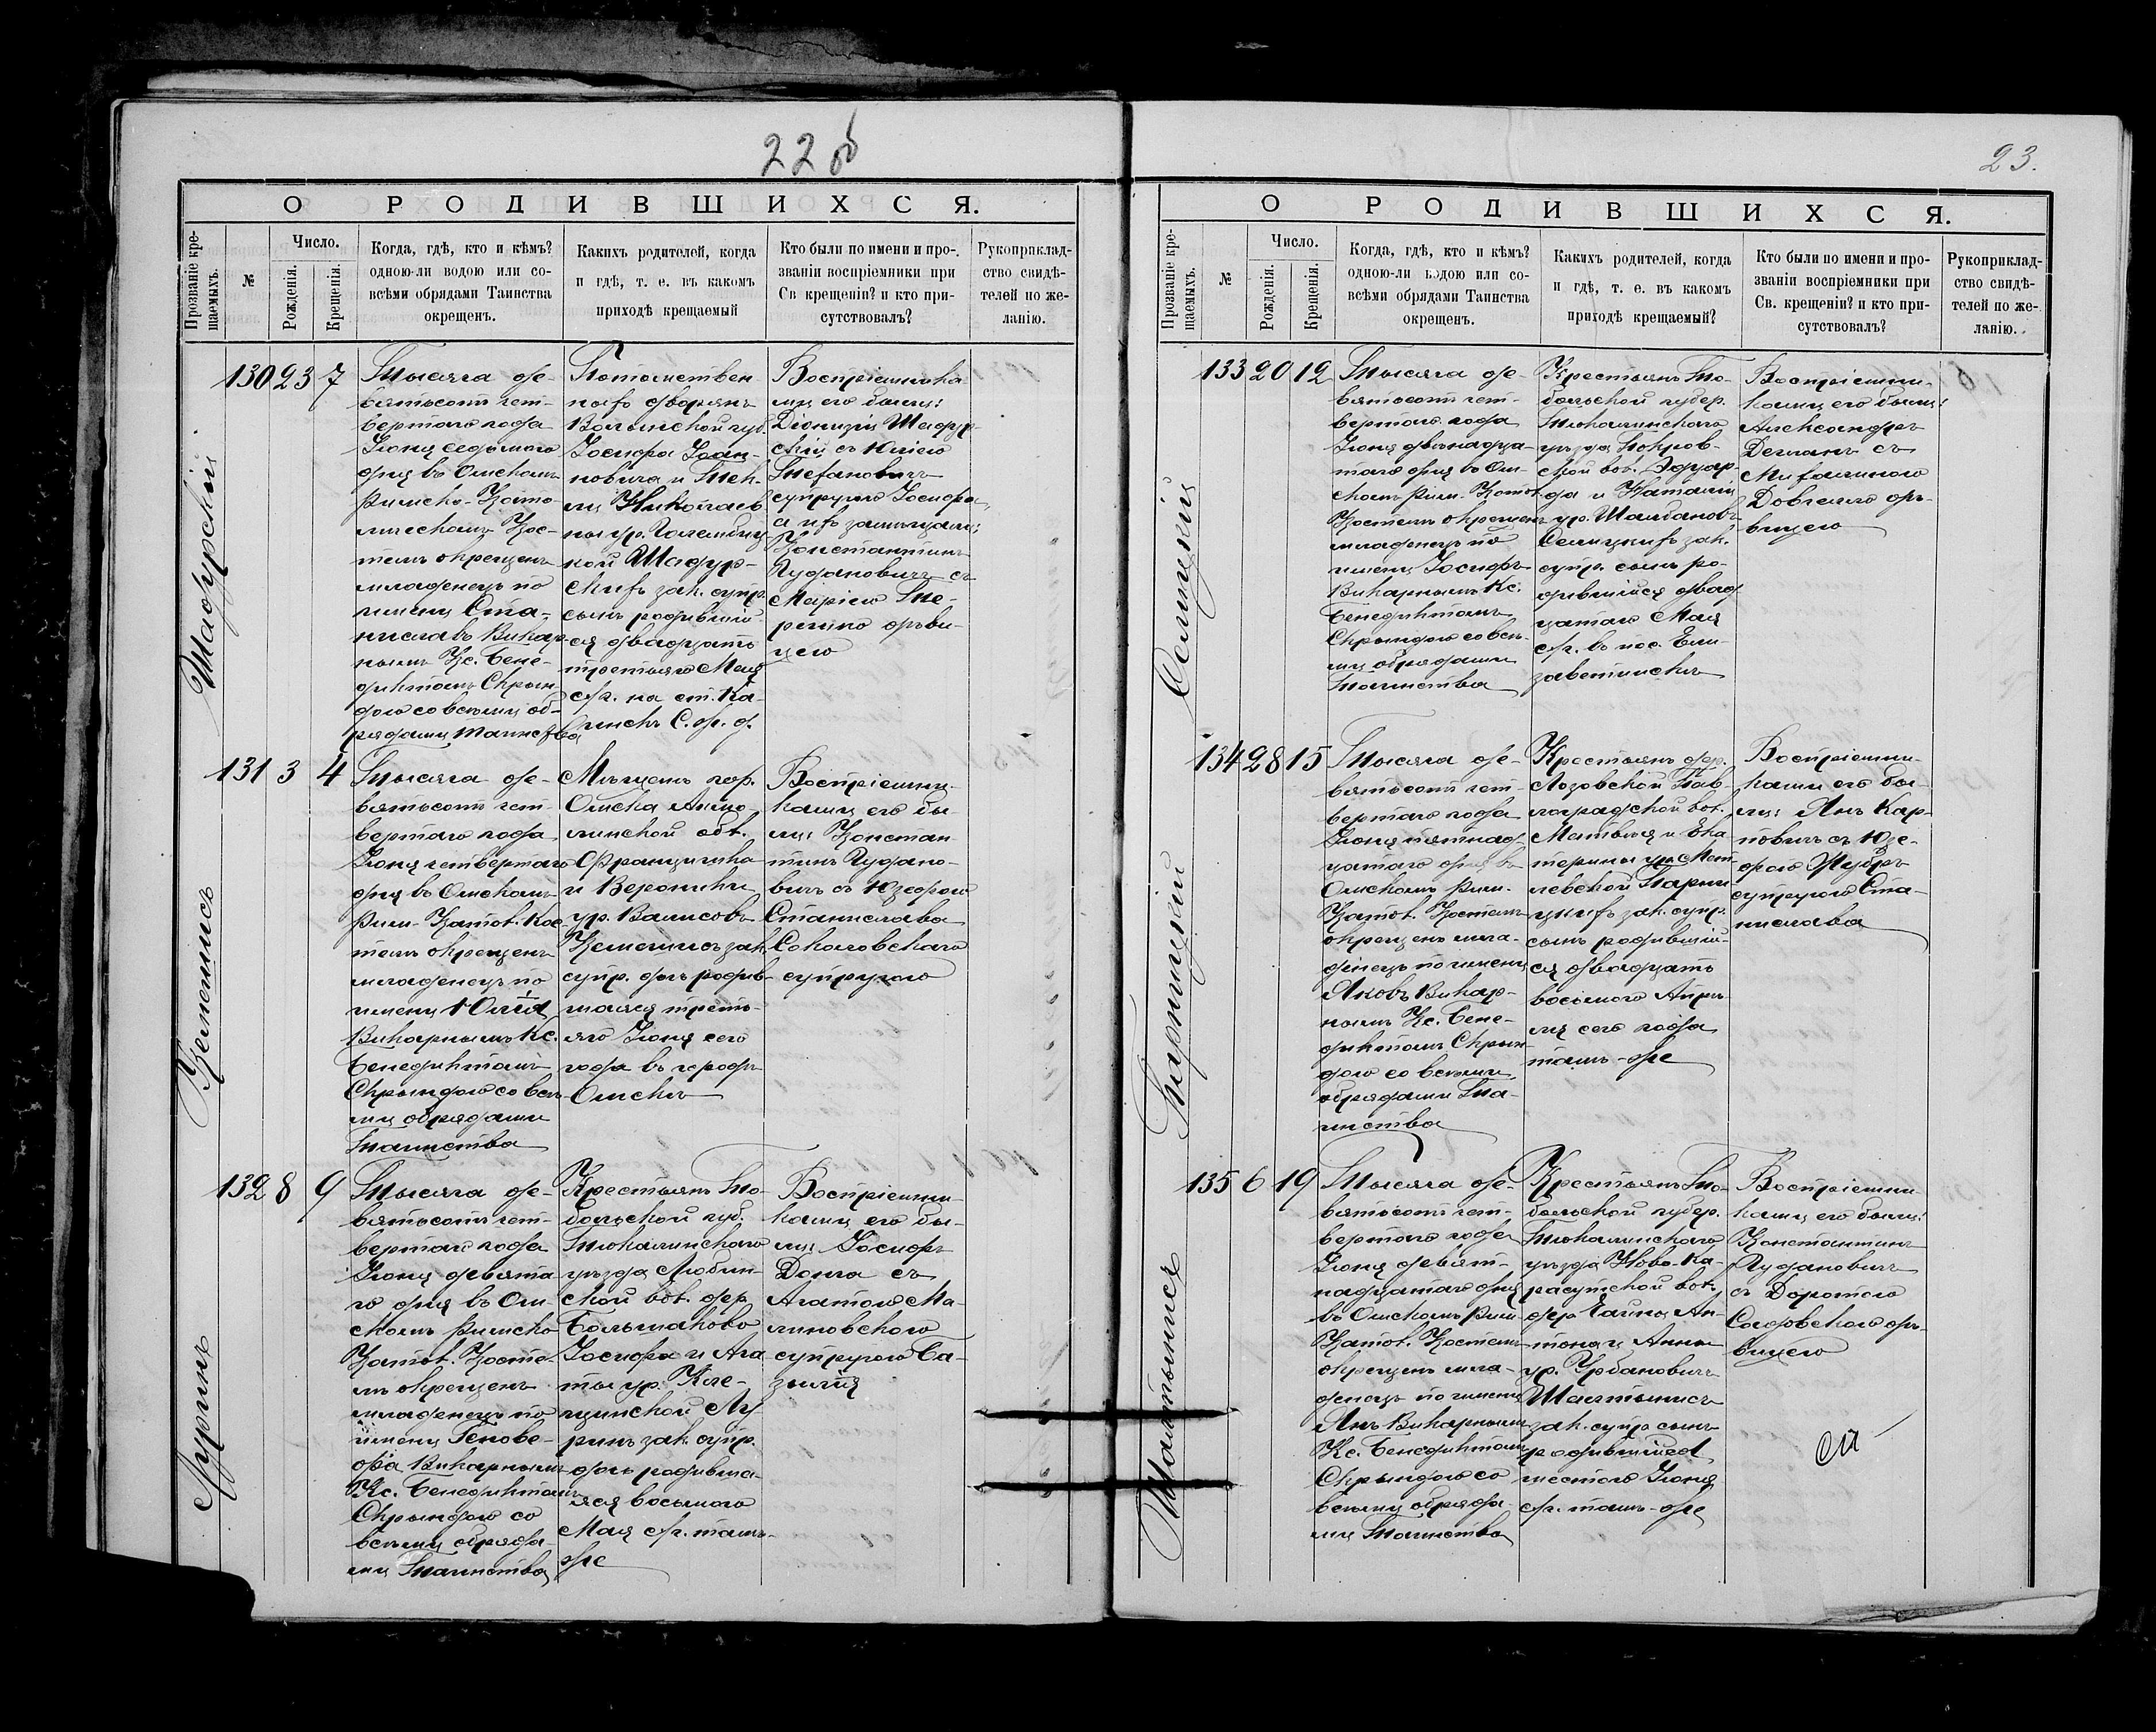 22 об
О РОДИВШИХСЯ.
Прозваніе кре-
щаемыхъ.
№
Число.
Рожденія.
Крещенія.
Когда, гдѣ, кто и кѣмъ?
одною-ли водою или со-
всѣми обрядами Таинства
окрещенъ.
Какихъ родителей, когда
и гдѣ, т. е. въ какомъ
приходѣ крещаемый
Кто были по имени и про-
званіи воспріемники при
Св крещеніи? и кто при-
сутствовалъ?
Рукоприклад-
ство свидѣ-
телей по же-
ланію.
130 23 7
Тысяча де-
вятьсотъ чет-
вертаго года
Іюня седьмого
дня въ Омскомъ
Римско-Като-
лическомъ Кос-
телѣ окрещенъ
младенецъ по
имени Ста-
ниславъ Викар-
нымъ Кс. Бене-
диктомъ Скрын-
дою со всѣми об-
рядами таинства
Потомствен-
ныхъ дворянъ
Волынской губ.
Іосифа Іоан-
новича и Тек-
ли Николаев-
ны ур.
кой Шадур-
скихъ зак. супр.
сынъ родившій-
ся двадцать
третьяго Мая
с/г. на ст. Ка-
инскъ С. ж. д.
Воспріемника-
ми его были:
Діонизій Шадур-
скій съ Юліею
Стефановичъ
супругою Іосифа,
а ихъ замѣщали:
Константинъ
Рудановичъ съ
Маріею Пе-
дѣви-
цею
131 3 4
Тысяча де-
вятьсотъ чет-
вертаго года
Іюня четвертаго
дня въ Омскомъ
Рим-Катол. Кос-
телѣ окрещенъ
младенецъ по
имени Юлія
Викарнымъ Кс.
Бенедиктомъ
Скрындою со всѣ-
ми обрядами
Таинства
Мѣщанъ гор.
Омска Акмо-
линской обл.
Францишка
и Вероники
ур. Валисовъ
зак.
супр. дочь родив-
шаяся треть-
яго Іюня сего
года въ городѣ
Омскѣ
Воспріемни-
ками его бы-
ли: Констан-
тинъ Рудано-
вичъ съ Юзефою
Станислава
Соколовскаго
супругою
132 8 9
Тысяча де-
вятьсотъ чет-
вертаго года
Іюня девята-
го дня въ Ом-
скомъ Римско
Катол. Косте-
лѣ окрещенъ
младенецъ по
имени Генове-
фа Викарнымъ
Кс. Бенедиктомъ
Скрындою со
всѣми обряда-
ми Таинства
Крестьянъ То-
больской губ.
Тюкалинскаго
уѣзда Любин-
ской вол. дер.
Большаково
Іосифа и Ага-
ты ур. Кле-
щинской Лу-
ринъ зак. супр.
дочь родивша-
яся восьмого
Мая с/г. тамъ-
же
Воспріемни-
ками его бы-
ли: Іосифъ
Донга съ
Агатою Ма-
линовскаго
супругою Ва-
зылія
Шадурскій
Луринъ
23.
О РОДИВШИХСЯ.
Прозваніе кре-
щаемыхъ.
№
Число.
Рожденія.
Крещенія.
Когда, гдѣ, кто и кѣмъ?
одною-ли водою или со-
всѣми обрядами Таинства
окрещенъ.
Какихъ родителей, когда
и гдѣ, т. е. въ какомъ
приходѣ крещаемый?
Кто были по имени и про-
званіи воспріемники при
Св. крещеніи? и кто при-
сутствовалъ?
Рукоприклад-
ство свидѣ-
телей по же-
ланію.
133 20 12
Тысяча де-
вятьсотъ чет-
вертаго года
Іюня двѣнадца-
таго дня въ Ом-
скомъ Рим-Катол.
Костелѣ окрещенъ
младенецъ по
имени Іосифъ
Викарнымъ Кс.
Бенедиктомъ
Скрындою со всѣ-
ми обрядами
Таинства
Крестьянъ То-
больской губер.
Тюкалинскаго
уѣзда Покров-
ской вол. Эдуар-
да и Наталіи
ур.
Селицкихъ зак.
супр. сынъ ро-
дившійся двад-
цатаго Мая
с/г. въ пос. Ели-
заветинскѣ
Воспріемни-
ками его были:
Александръ
съ
Михалиною
дѣ-
вицею
134 28 15
Тысяча де-
вятьсотъ чет-
вертаго года
Іюня пятнад-
цатаго дня въ
Омскомъ Рим-
Катол. Костелѣ
окрещенъ мла-
денецъ по имени
Яковъ Викар-
нымъ Кс. Бене-
диктомъ Скрын-
дою со всѣми
обрядами Та-
инства
Крестьянъ дер.
Лозовской Пав-
лоградской вол.
Матвѣя и Ека-
терины ур.
зак. супр.
сынъ родившій-
ся двадцать
восьмого Апрѣ-
ля сего года
тамъ-же
Воспріемни-
ками его бы-
ли: Янъ Кар-
повичъ съ Юзе-
фою
супругою Ста-
нислава
135 6 19
Тысяча де-
вятьсотъ чет-
вертаго года
Іюня девят-
надцатаго дня
въ Омскомъ Рим-
Катол. Костелѣ
окрещенъ мла-
денецъ по имени
Янъ Викарнымъ
Кс. Бенедиктомъ
Скрындою со
всѣми обряда-
ми Таинства
Крестьянъ То-
больской губер.
Тюкалинскаго
уѣзда Ново-Ка-
расукской вол.
дер. Ан-
тона и Анны
ур. Урбановичъ
зак. супр. сынъ
родившійся
шестого Іюня
с/г. тамъ-же
Воспріемни-
ками его были:
Константинъ
Рудановичъ
съ Доротою
Садовскою дѣ-
вицею
Селицкій